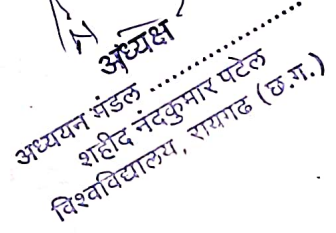 अध्यक्ष
अध्ययन मंडल ........................
शहीद नंदकुमार पटेल
विश्वविद्यालय, रायगढ (छ.ग.)